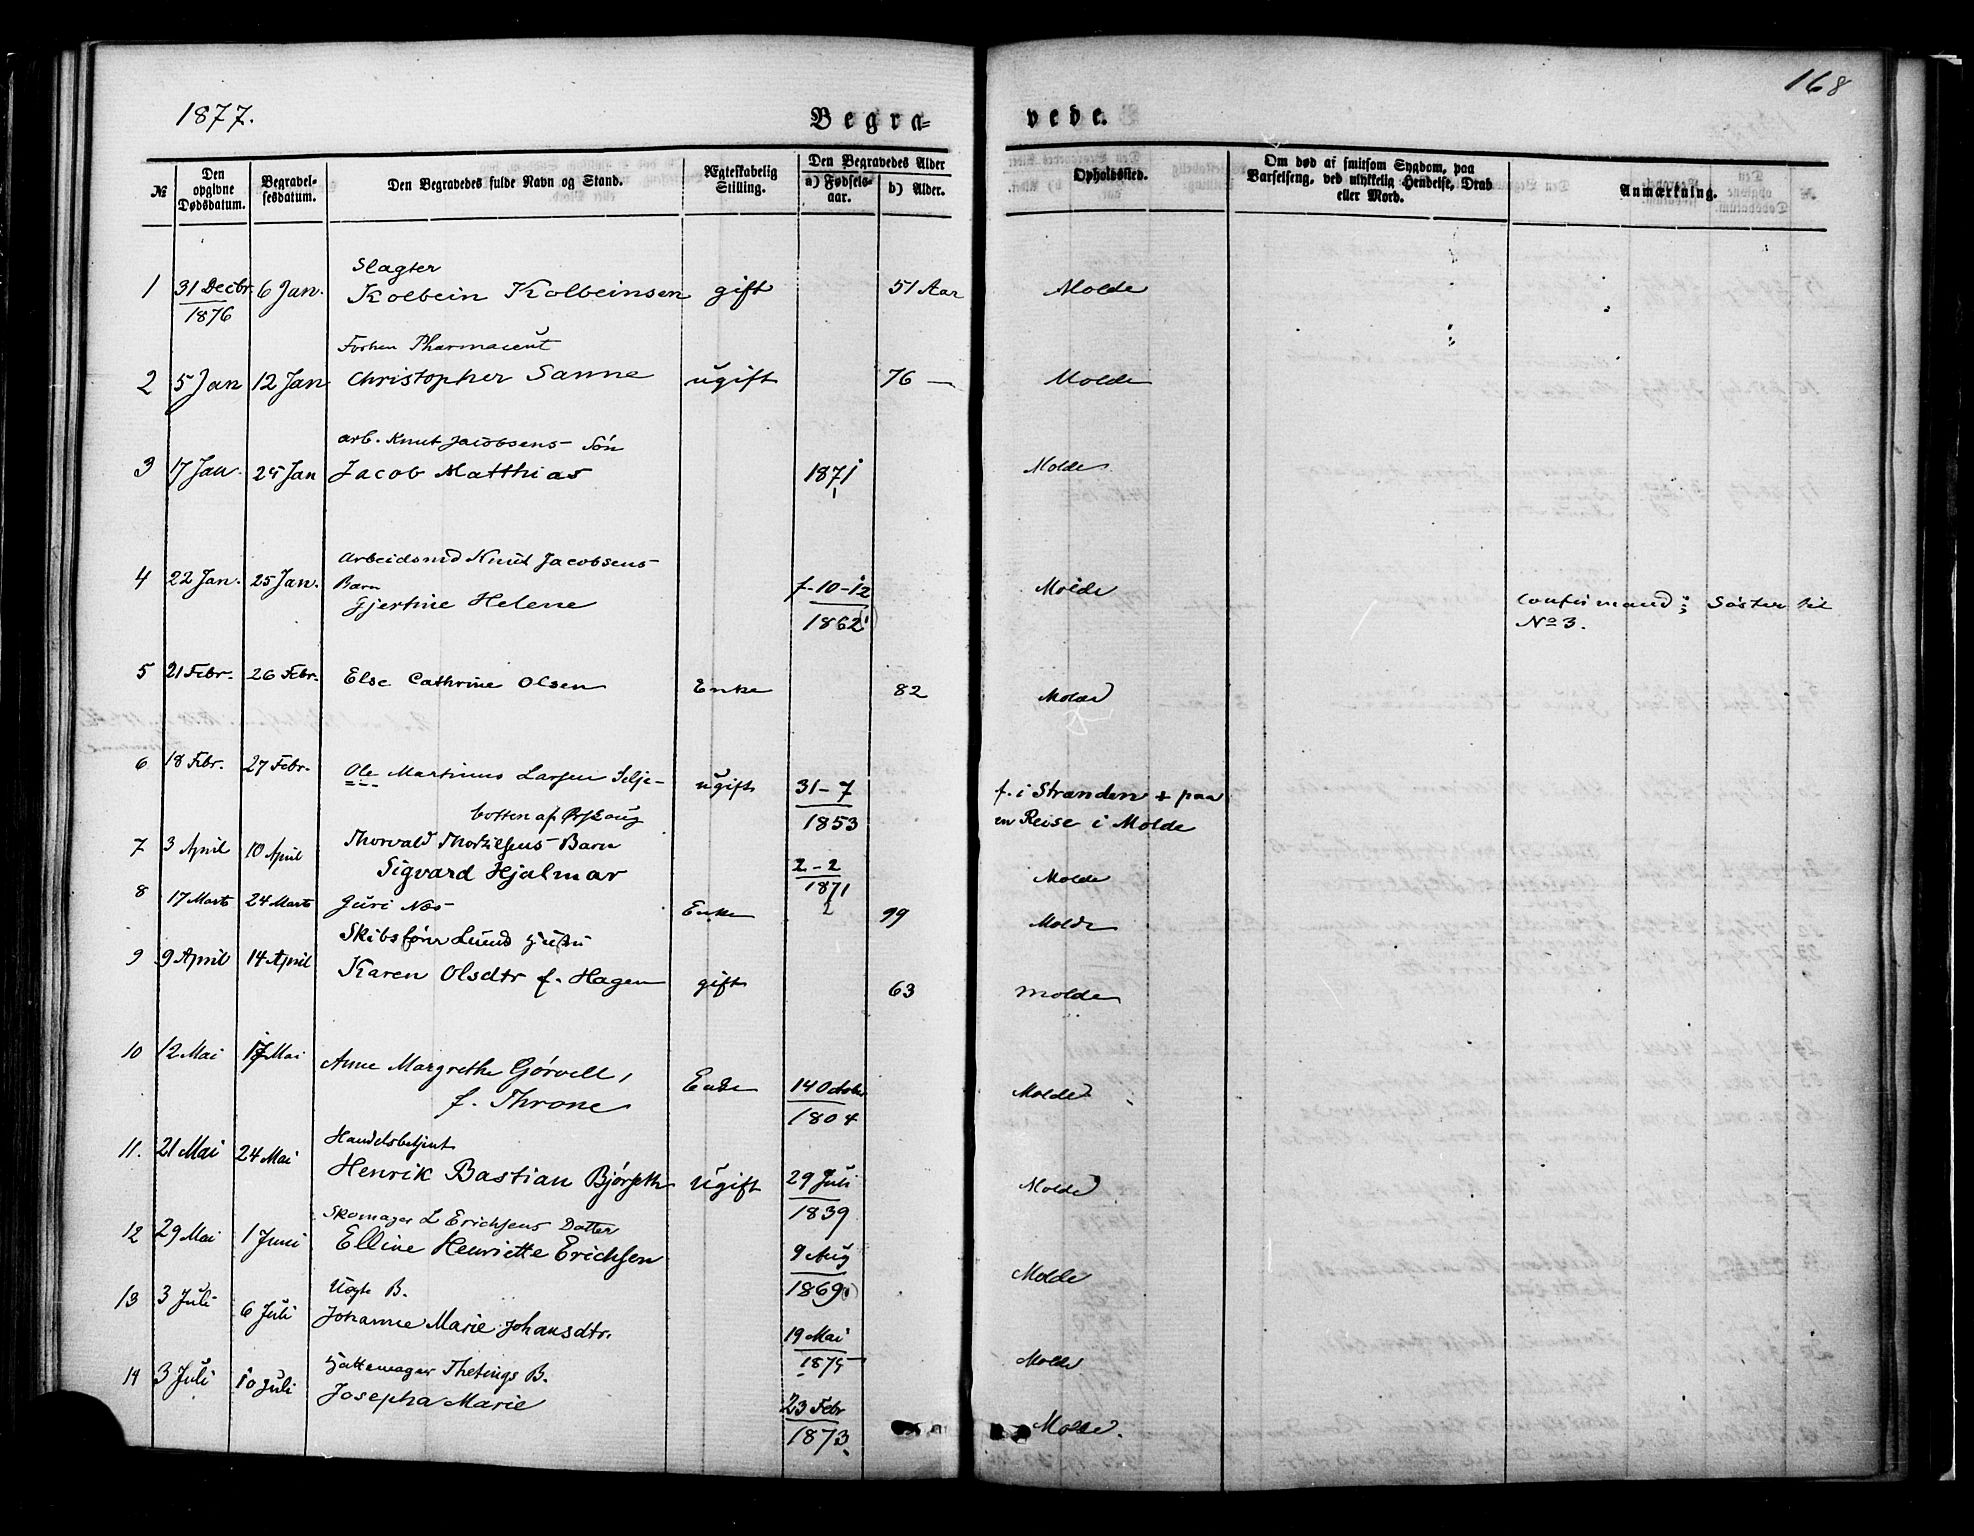 168
1877.
Begra=
vede.
№
Den opgivne Dødsdatum.
Begravelsesdatum.
Den Begravedes fulde Navn og Stand.
Ægteskabelig Stilling.
Den Begravedes Alder
a) Fødselsaar.
b) Alder.
Opholdssted.
Om død af smitsom Sygdom, paa Barselseng, ved ulykkelig Hendelse, Drab eller Mord.
Anmærkning.
Slagter
1 31 Decbr 1876 6 Jan. Kolbein Kolbeinsen gift 51 Aar Molde
Forhen Pharmaceut
2 5 Jan 12 Jan Christopher Sanne ugift 76 — Molde
arb. Knut Jacobsens Søn
3 17 Jan. 25 Jan Jacob Matthias 1871 Molde
Arbeidsmd Knut Jacobsens
4 22 Jan. 25 Jan. Barn
Gjertine Helene f. 10-12 1862 Molde Confirmand; Søster til
No 3.
5 21 Febr. 26 Febr. Else Cathrine Olsen Enke 82 Molde
6 18 Febr. 27 Febr. Ole Martinus Larsen Selje-
botten af Ørskoug ugift 31-7 1853 f. i Stranden + paa
en Reise i Molde
7 3 April 10 April Thorvald Thorkilsens Barn
Sigvard Hjalmar 2-2 1871 Molde
8 17 Marts 24 Marts Guri Næs Enke 99 Molde
Skibsfører Lund Hustru
9 9 April 14 April Karen Olsdtr f. Hagen gift 63 Molde
10 12 Mai 17 Mai Anne Margrethe Gørvell,
f. Throne Enke 14 October 1804 Molde
Handelsbetjent
11. 21 Mai 24 Mai Henrik Bastian Bjørseth ugift 29 Juli 1839 Molde
Skomager L Erichsens Datter
12 29 Mai 1 Juni Elline Henriette Erichsen 9 Aug 1869 Molde
Uægte B.
13 3 Juli 6 Juli Johanne Marie Johansdtr. 19 Mai 1875 Molde
Hattemager Thetings B.
14 3 Juli 10 Juli Josepha Marie 23 Febr 1873 Molde.